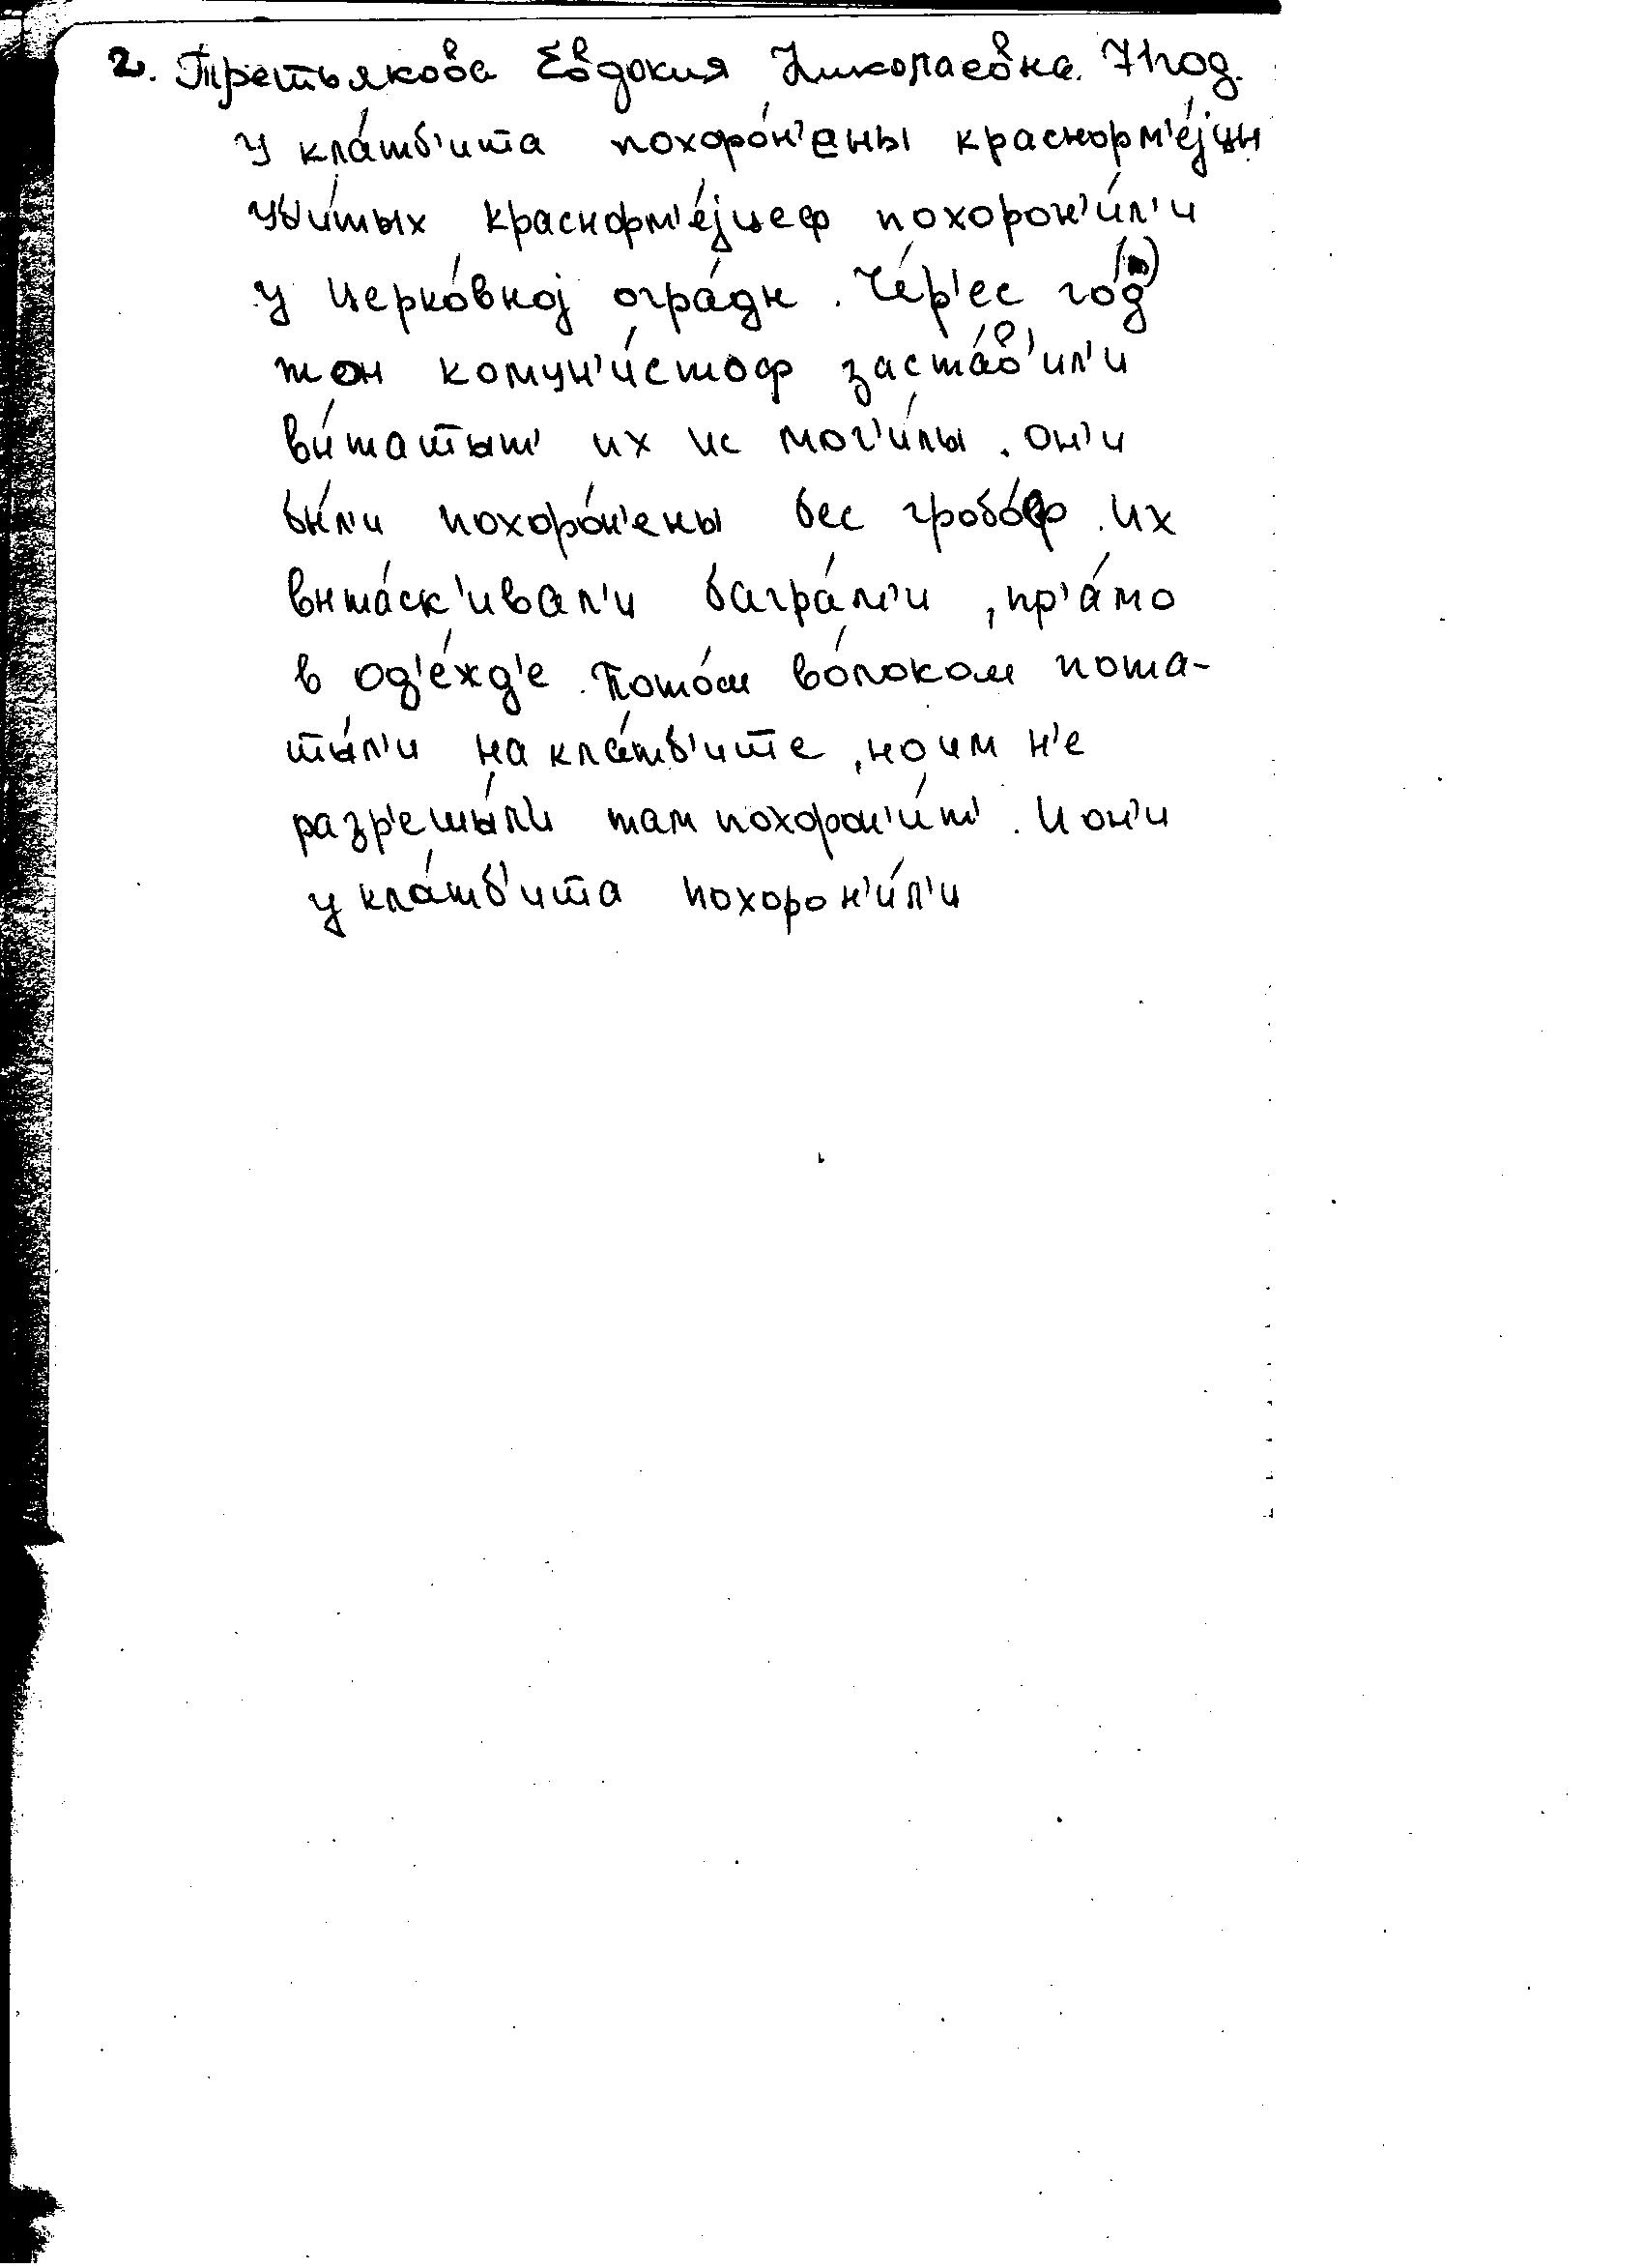 2. Третьякова Евдокия Николаевна. 71 год.
у кла́дб'ишша похоро́н'ены краснорм'е́јцы
уби́тых краснорм'е́јцеф похорон'и́л'и
у церко́вној огра́ды. Че́р'ес го́д(т)
жон комун'и́стоф заста́в'ил'и
вы́таш̅шыт' их ис мог'и́лы. он'и
бы́л'и похоро́н'ены бес гробо́ф. Их
выта́ск'ивал'и багра́м'и, пр'а́мо
в од'е́жд'е. Пото́м во́локом пота-
шшы́л'и на кла́дб'ишше, но им н'е
разр'ешы́л'и там похорон'и́т'. И он'и
у кла́дб'ишша похорон'и́л'и